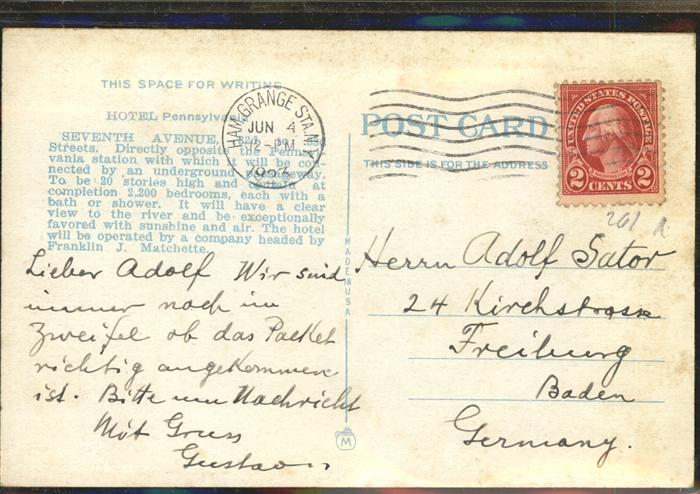 THIS SPACE FOR WRITING
HOTEL Pennsylvania
SEVENTH AVENUE, 32d to 33d
Streets. Directly opposite the Pennsyl-
vania station with which it will be con-
nected by an underground
To be 20 stories high and contain at
completion 2,200 bedrooms, each with a
bath or shower. It will have a clear
view to the river and be exceptionally
favored with sunshine and air. The hotel
will be operated by a company headed by
Franklin J. Matchette.
Lieber Adolf Wir sind
immer noch im
Zweifel ob das Packet
richtig angekommen
ist. Bitte um Nachricht
Mit Gruss
Gustav
HAM. GRANGE STA. N.Y.
JUN 4
12-PM
MADE IN USA
M
POST CARD
THIS SIDE IS FOR THE ADDRESS
UNITED STATES POSTAGE
2 CENTS 2
261
Herrn Adolf Sator
24 Kirchstrasse
Freiburg
Baden
Germany.